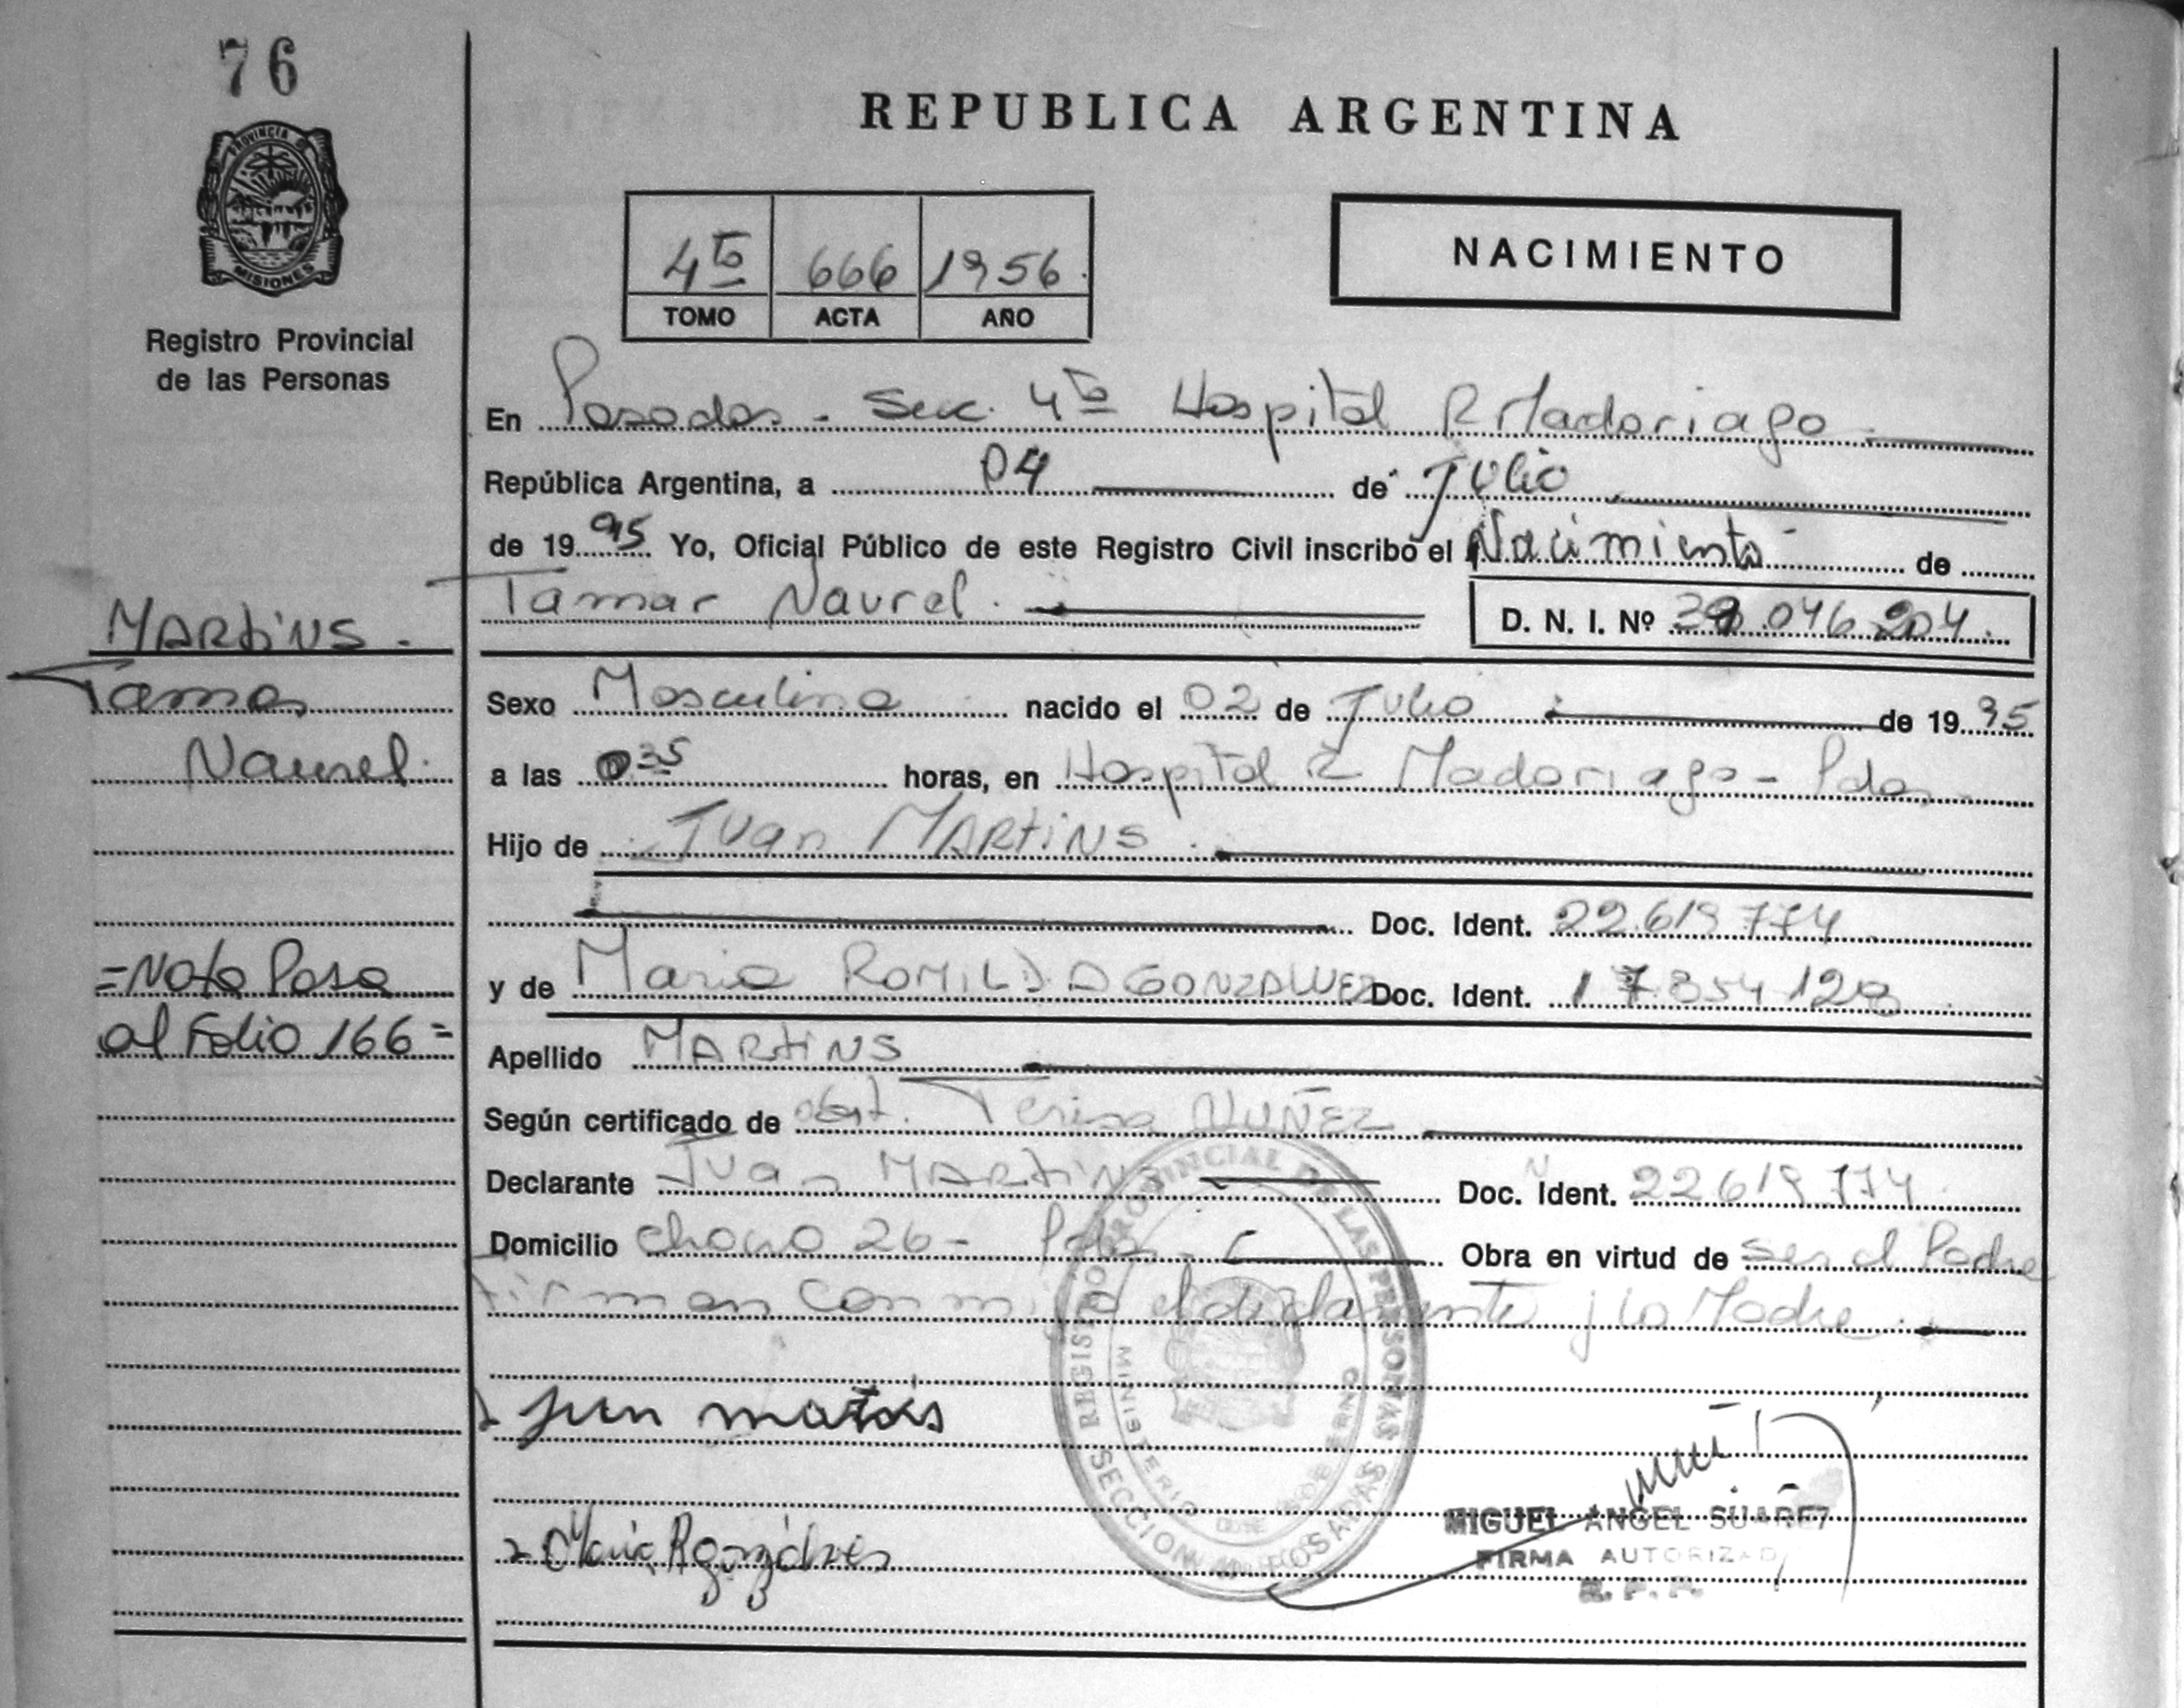 76
PROVINCIA DE
MISIONES
Registro Provincial
de las Personas
REPUBLICA ARGENTINA
4to 666 1956.
TOMO ACTA AÑO
NACIMIENTO
En Posadas - Secc. 4to Hospital R Madariaga
República Argentina, a 04 de Julio
de 1995 Yo, Oficial Público de este Registro Civil inscribo el Nacimiento de
Tamar Naurel.
D. N. I. Nº .046.204.
MARtiNS.
Tamar
Naurel.
Sexo Masculino nacido el 02 de Julio de 1995
a las 035 horas, en Hospital R Madariaga - Pdas
Hijo de Juan MARtiNS
Doc. Ident. 22.619.774
y de Maria ROMILDA GONZALVEZ Doc. Ident. 17.854.128
=Nota Pasa
al Folio 166=
Apellido MARtiNS
Según certificado de obst. Teresa NUÑEZ
Declarante Juan MARtiNS Doc. Ident. Nº 22619774
Domicilio chaco 26 - Pdas - Obra en virtud de ser el Padre
Firman conmigo el declarante y la Madre.
REGISTRO PROVINCIAL DE LAS PERSONAS
MINISTERIO DE GOBIERNO
SECCION POSADAS
Maria R gonzalves
MIGUEL ANGEL SUAREZ
FIRMA AUTORIZADA
R. P. P.